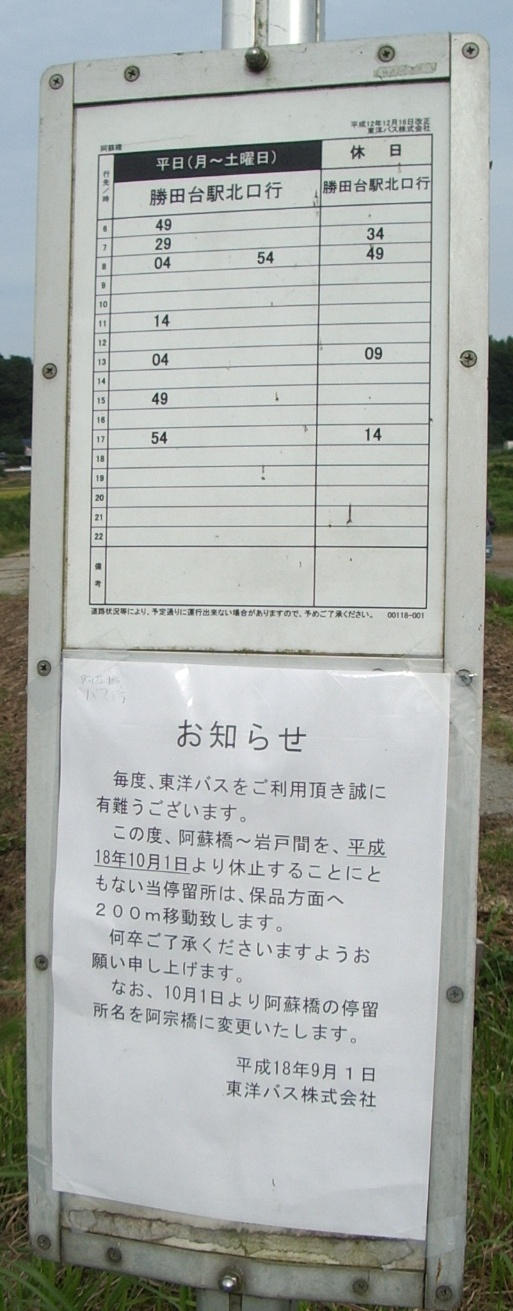 平成12年12月16日改正
東洋バス株式会社
阿蘇橋
行先／時 平日(月〜土曜日) 休日
勝田台駅北口行 勝田台駅北口行
6 49
7 29 34
8 04 54 49
9
10
11 14
12
13 04 09
14
15 49
16
17 54 14
18
19
20
21
22
備考
道路状況等により、予定通りに運行出来ない場合がありますので、予めご了承ください。 00118-001
お知らせ
毎度、東洋バスをご利用頂き誠に
有難うございます。
この度、阿蘇橋〜岩戸間を、平成
18年10月1日より休止することにと
もない当停留所は、保品方面へ
２００ｍ移動致します。
何卒ご了承くださいますようお
願い申し上げます。
なお、10月1日より阿蘇橋の停留
所名を阿宗橋に変更いたします。
平成18年9月１日
東洋バス株式会社